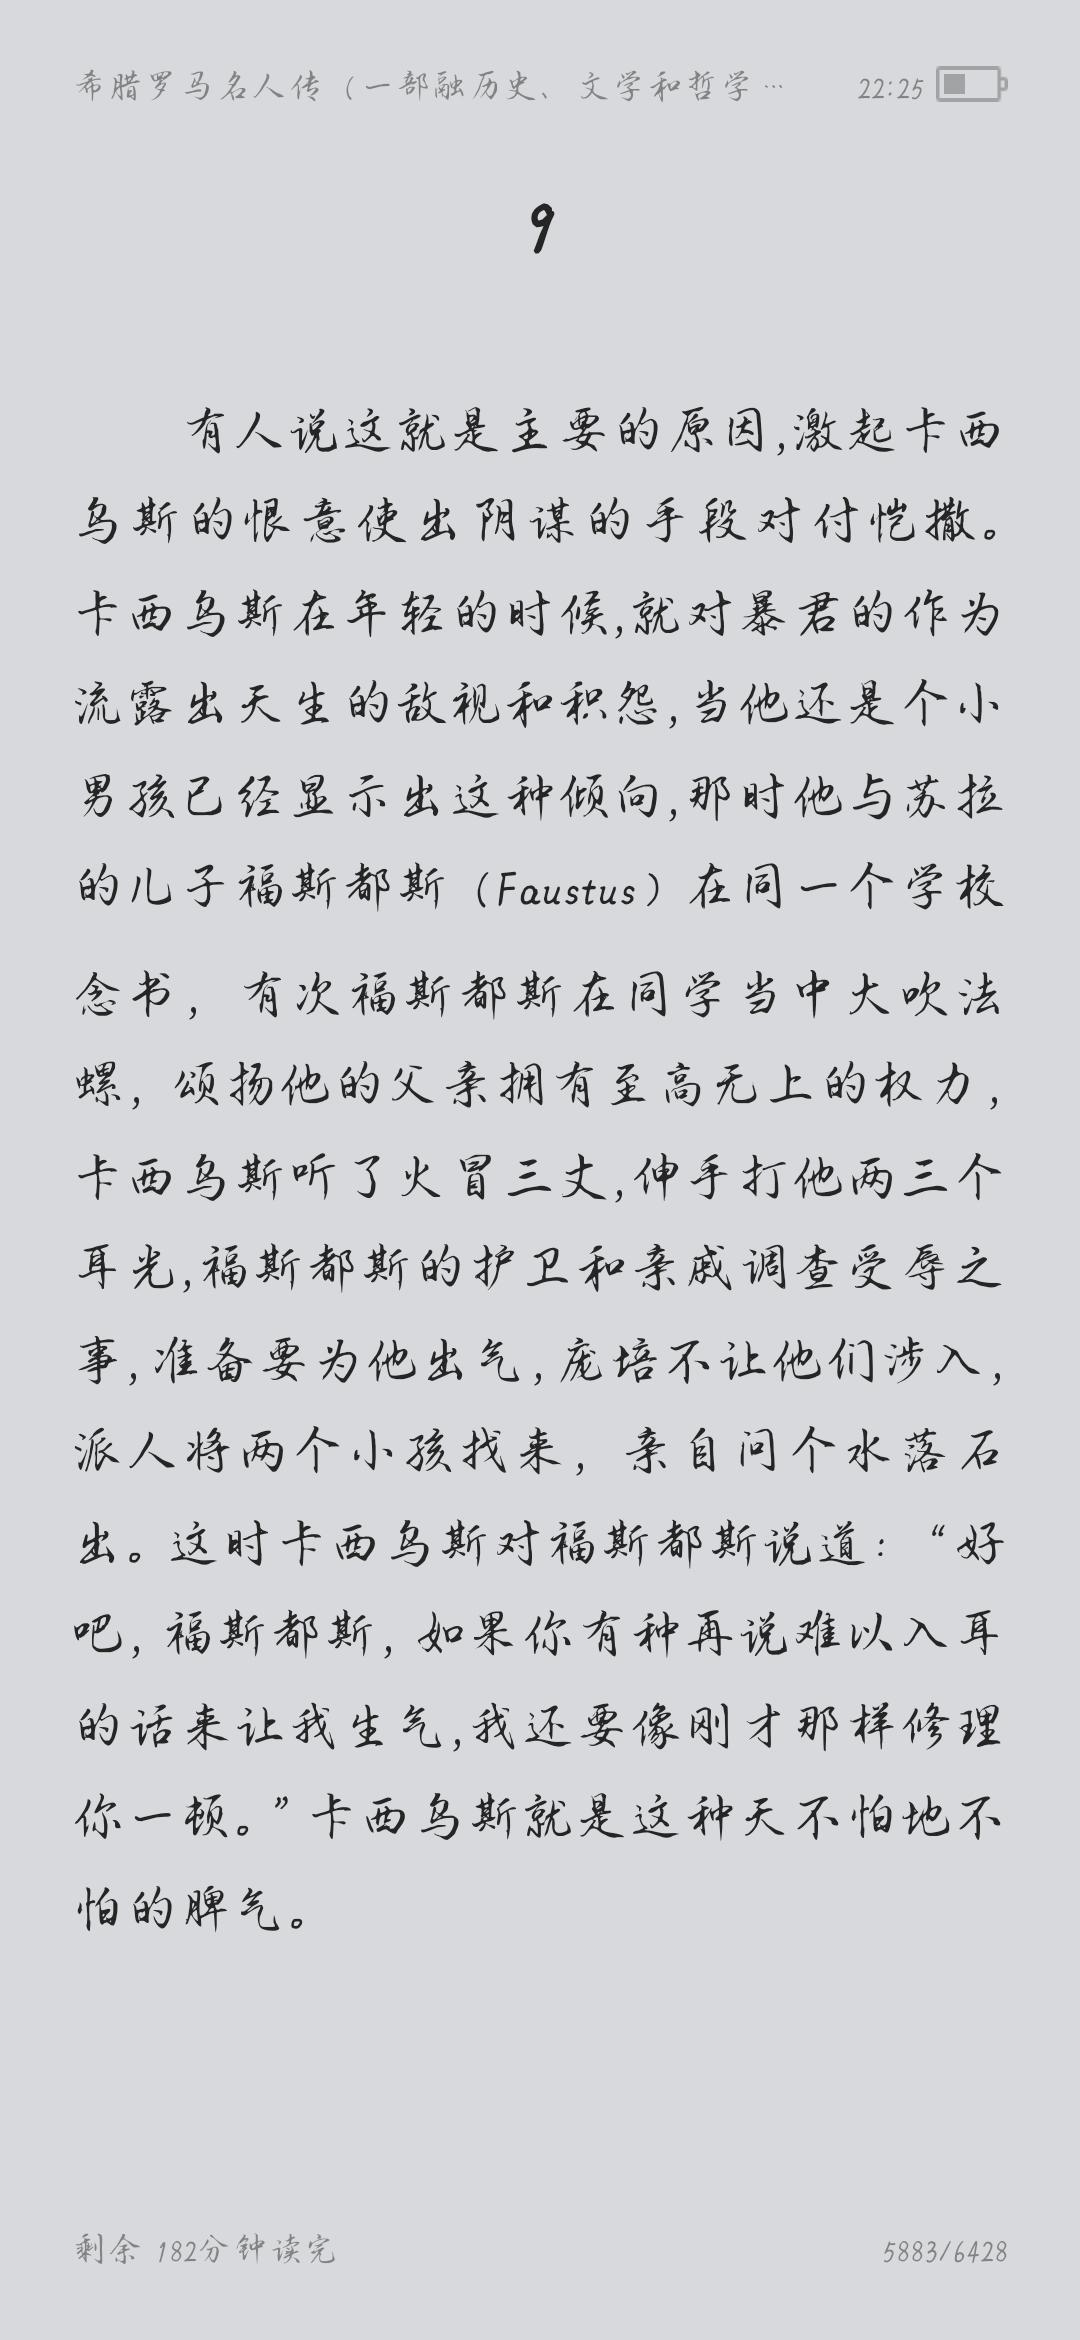 希腊罗马名人传（一部融历史、文学和哲学… 22:25
9
有人说这就是主要的原因,激起卡西
乌斯的恨意使出阴谋的手段对付恺撒。
卡西乌斯在年轻的时候,就对暴君的作为
流露出天生的敌视和积怨,当他还是个小
男孩已经显示出这种倾向,那时他与苏拉
的儿子福斯都斯（Faustus）在同一个学校
念书，有次福斯都斯在同学当中大吹法
螺，颂扬他的父亲拥有至高无上的权力，
卡西乌斯听了火冒三丈,伸手打他两三个
耳光,福斯都斯的护卫和亲戚调查受辱之
事,准备要为他出气,庞培不让他们涉入，
派人将两个小孩找来，亲自问个水落石
出。这时卡西乌斯对福斯都斯说道：“好
吧，福斯都斯，如果你有种再说难以入耳
的话来让我生气,我还要像刚才那样修理
你一顿。”卡西乌斯就是这种天不怕地不
怕的脾气。
剩余 182分钟读完 5883/6428